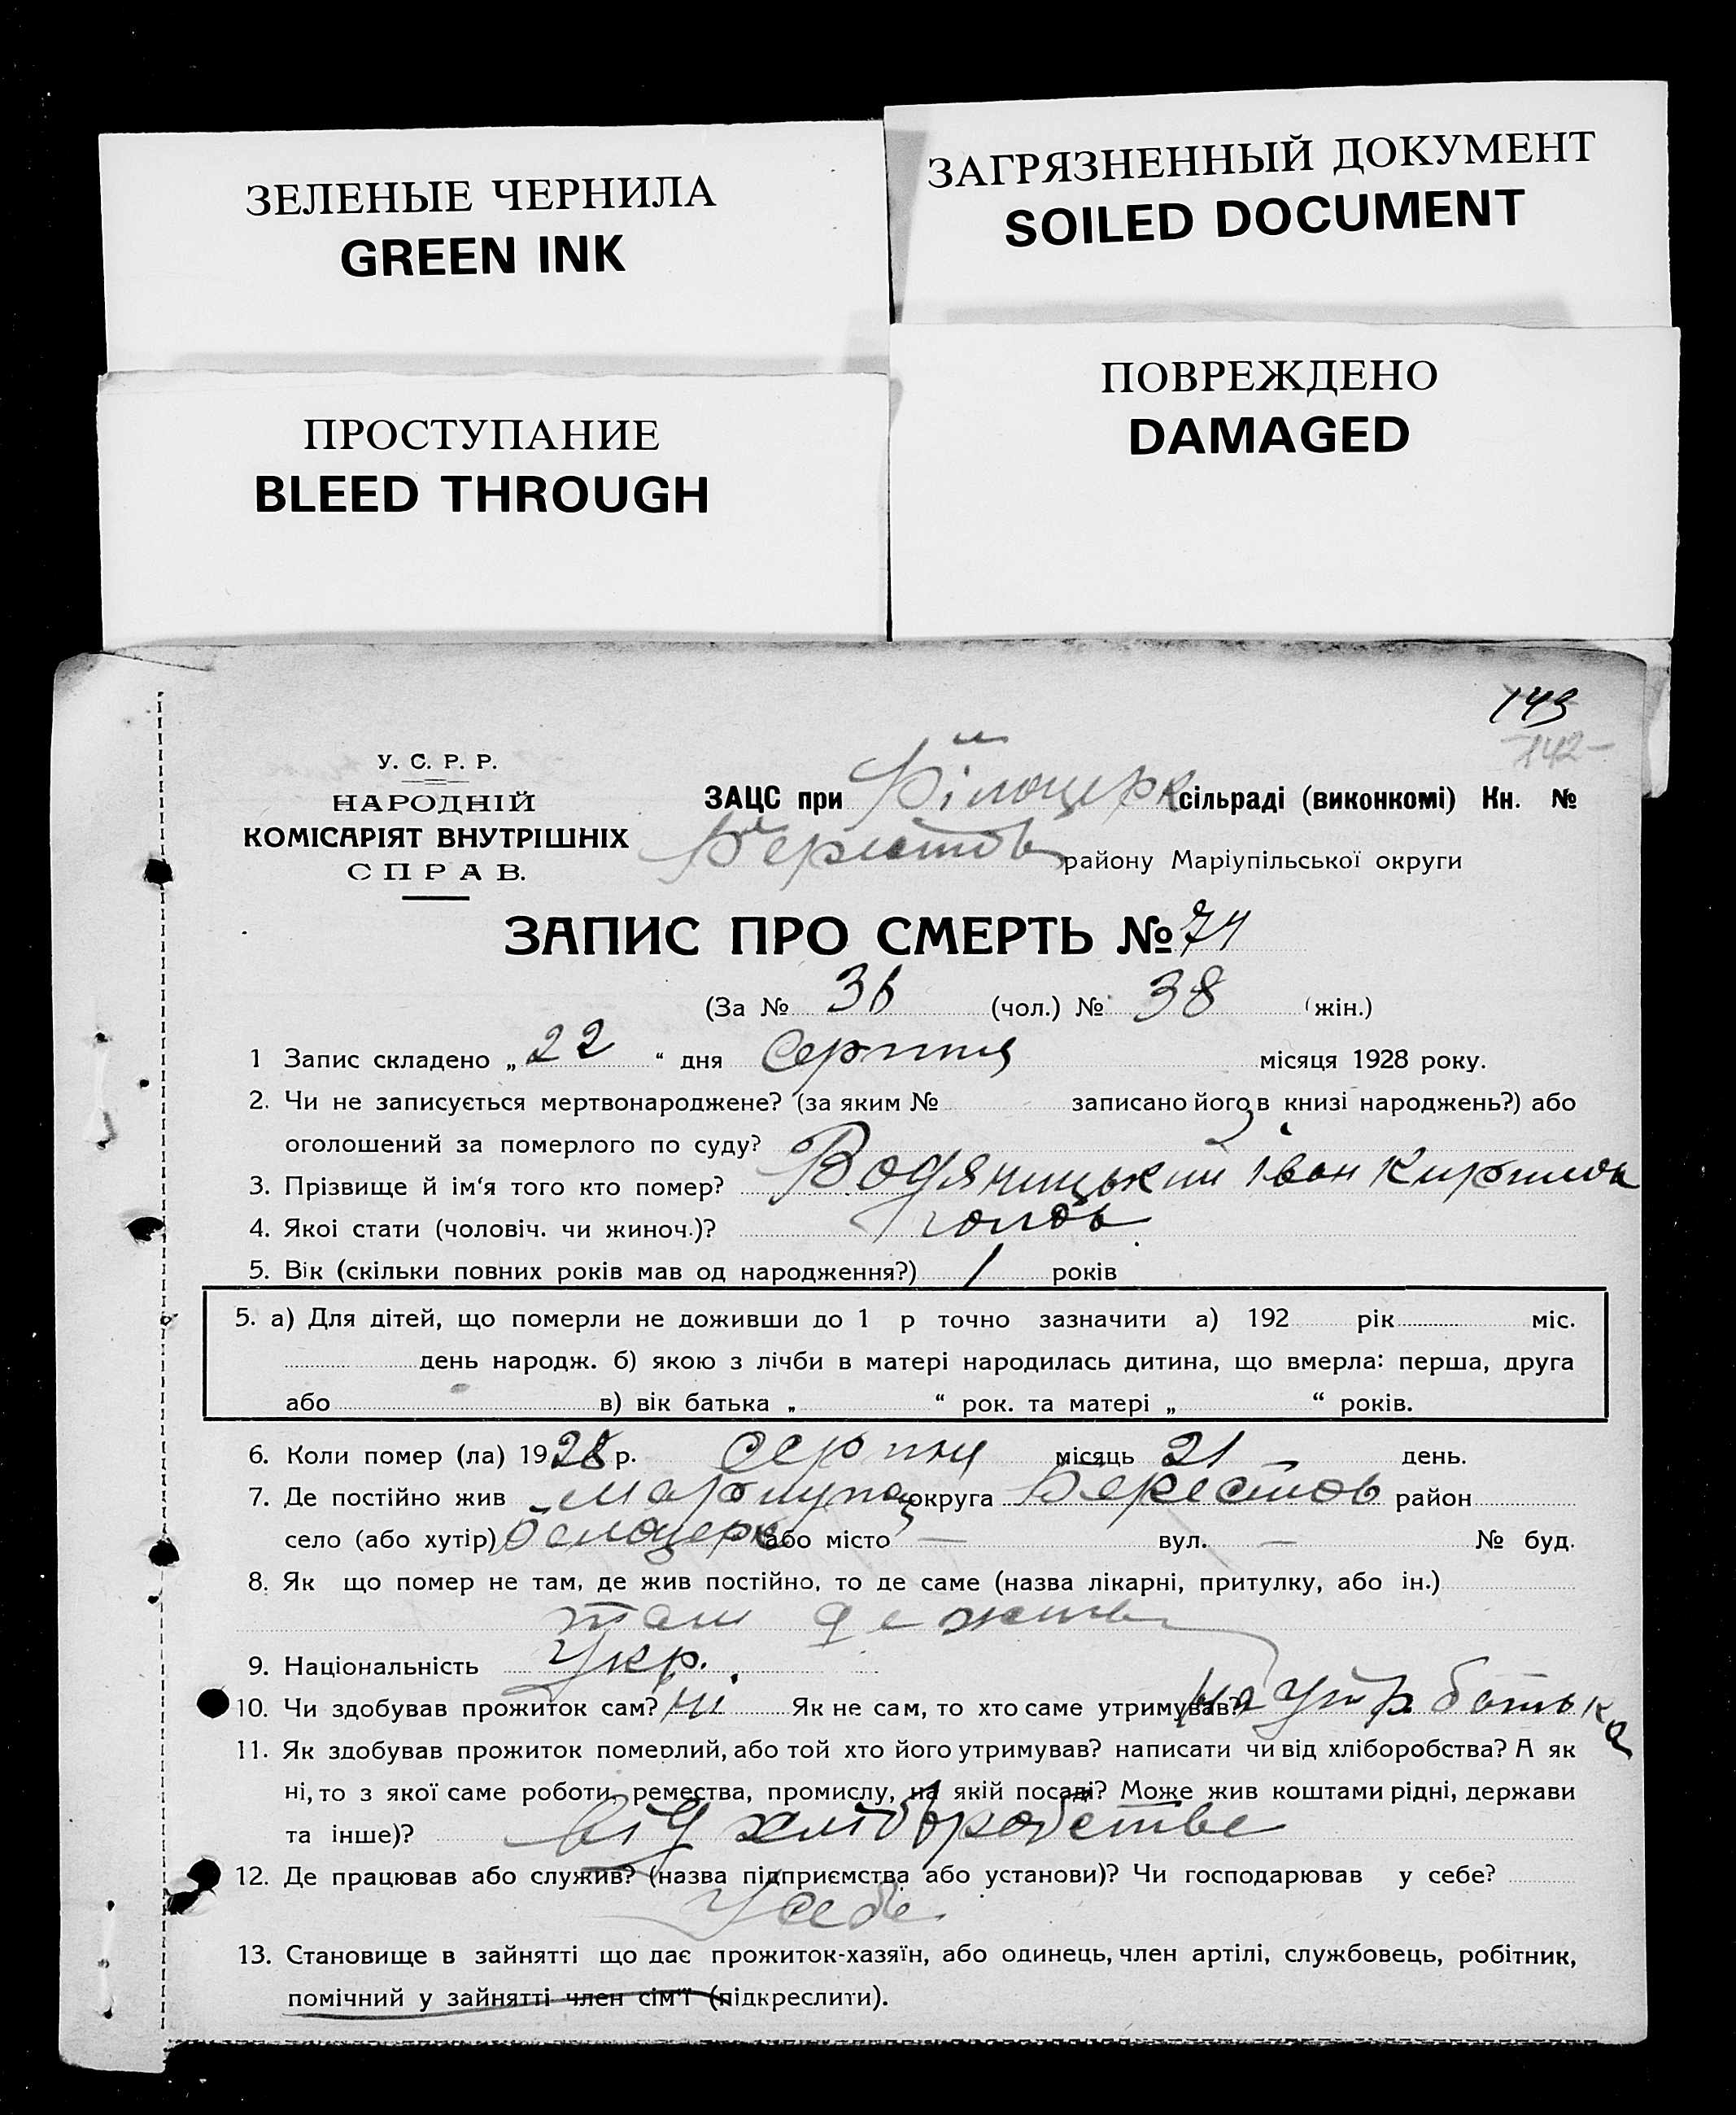 ЗЕЛЕНЫЕ ЧЕРНИЛА
GREEN INK
ЗАГРЯЗНЕННЫЙ ДОКУМЕНТ
SOILED DOCUMENT
ПРОСТУПАНИЕ
BLEED THROUGH
ПОВРЕЖДЕНО
DAMAGED
143
142
У. С. Р. Р.
НАРОДНІЙ
КОМІСАРІЯТ ВНУТРІШНІХ
СПРАВ.
ЗАЦС при Білоцерк сільраді (виконкомі) Кн. №
Берестов району Маріупільської округи
ЗАПИС ПРО СМЕРТЬ № 74
(За № 36 (чол.) № 38 (жін.)
1 Запис складено „ 22 “ дня Серпня місяця 1928 року.
2. Чи не записується мертвонароджене? (за яким № записано його в книзі народжень?) або
оголошений за померлого по суду?
3. Прізвище й ім‘я того кто помер? Водяницький Іван Кирилов
4. Якоі стати (чоловіч. чи жиноч.)? чолов
5. Вік (скільки повних років мав од народження?) 1 років
5. а) Для дітей, що померли не доживши до 1 р точно зазначити а) 192 рік міс.
день народж. б) якою з лічби в матері народилась дитина, що вмерла: перша, друга
або в) вік батька „ “ рок. та матері „ “ років.
6. Коли помер (ла) 1928 р. серпня місяць 21 день.
7. Де постійно жив Мариупол округа Берестов район
село (або хутір) Белоцерк або місто — вул. — № буд.
8. Як що помер не там, де жив постійно, то де саме (назва лікарні, притулку, або ін.)
там де жив
9. Національність Укр.
10. Чи здобував прожиток сам? ні Як не сам, то хто саме утримував? на утр. батька
11. Як здобував прожиток померлий, або той хто його утримував? написати чи від хліборобства? А як
ні, то з якої саме роботи, ремества, промислу, на якій посаді? Може жив коштами рідні, держави
та інше)? від хліборобстве
12. Де працював або служив? (назва підприємства або установи)? Чи господарював у себе?
У себе
13. Становище в зайнятті що дає прожиток-хазяїн, або одинець, член артілі, службовець, робітник,
помічний у зайнятті член сім'ї (підкреслити).